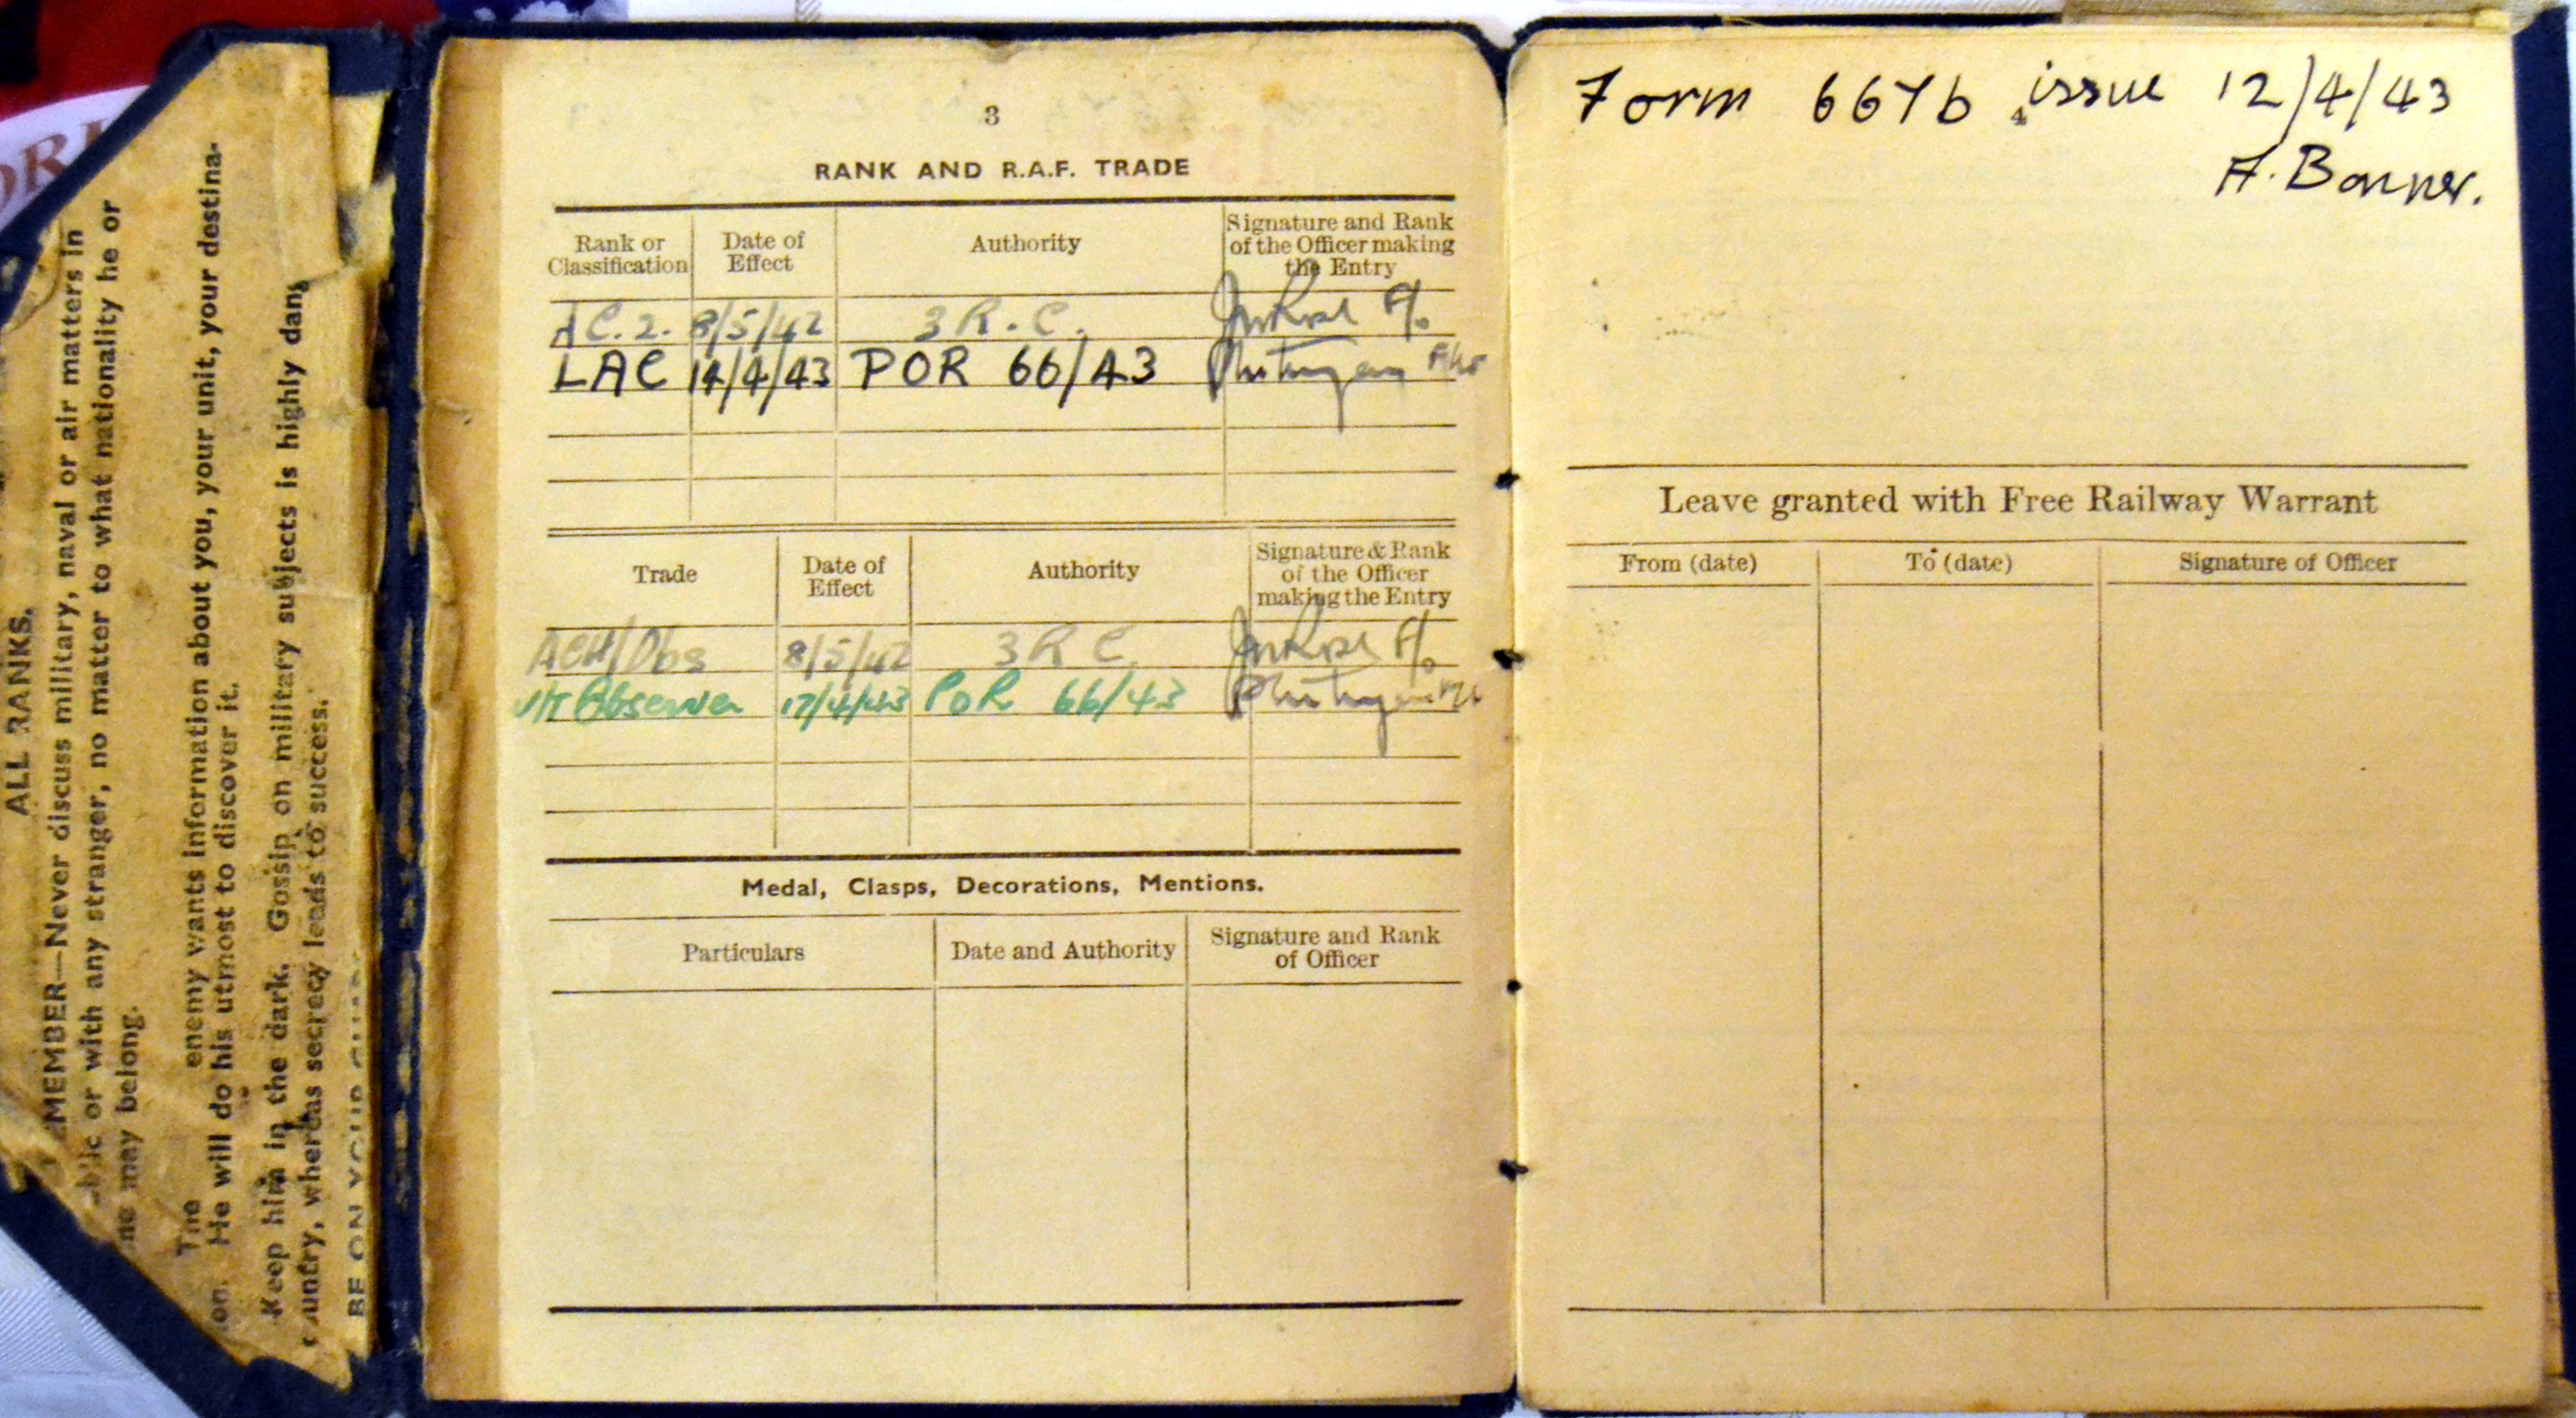 ALL RANKS.
MEMBER—Never discuss military, naval or air matters in
or with any stranger, no matter to what nationality he or
may belong.
The enemy wants information about you, your unit, your destina-
on. He will do his utmost to discover it.
Keep him in the dark. Gossip on military subjects is highly dan
country, whereas secrecy leads to success.
BE ON YOUR
3
RANK AND R.A.F. TRADE
Rank or Classification Date of Effect Authority Signature and Rank of the Officer making the Entry
AC.2. 8/5/42 3 R.C. F/o
LAC 14/4/43 POR 66/43
Trade Date of Effect Authority Signature & Rank of the Officer making the Entry
ACH/Obs 8/5/42 3 R C F/o
Observer 17/4/43 POR 66/43
Medal, Clasps, Decorations, Mentions.
Particulars Date and Authority Signature and Rank of Officer
4
Form 667b issue 12/4/43
Leave granted with Free Railway Warrant
From (date) To (date) Signature of Officer